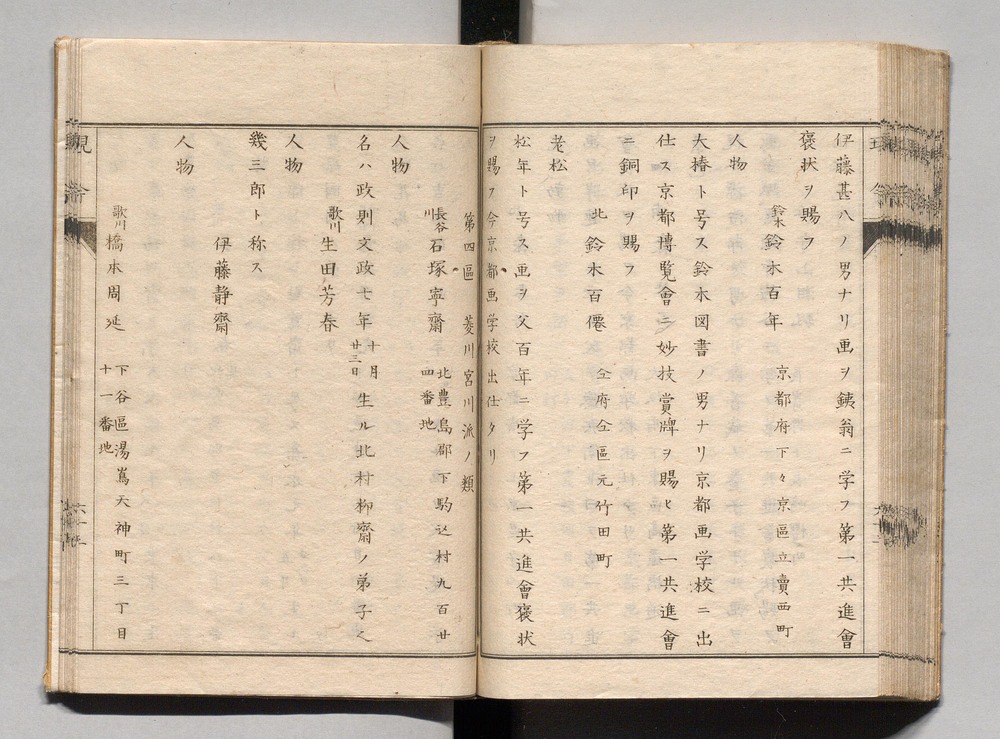 伊藤甚八ノ男ナリ画ヲ銕翁ニ学フ第一共進會
褒状ヲ賜フ
鈴木 鈴木百年 京都府下々京區立賣西町
人物
大椿ト号ス鈴木図書ノ男ナリ京都画学校ニ出
仕ス京都博覧會ニ妙技賞牌ヲ賜ヒ第一共進會
ニ銅印ヲ賜フ
北 鈴木百僊 仝府仝區元竹田町
老松
松年ト号ス画ヲ父百年ニ学フ第一共進會褒状
ヲ賜フ今京都画学校出仕タリ
第四區 菱川宮川派ノ類
長谷川 石塚寧齋 北豊島郡下駒込村九百廿四番地
人物
名ハ政則文政七年十月廿三日生ル北村柳齋ノ弟子之
歌川 生田芳春
人物
幾三郎ト称ス
伊藤静齋
人物
歌川 橋本周延 下谷區湯嶌天神町三丁目十一番地